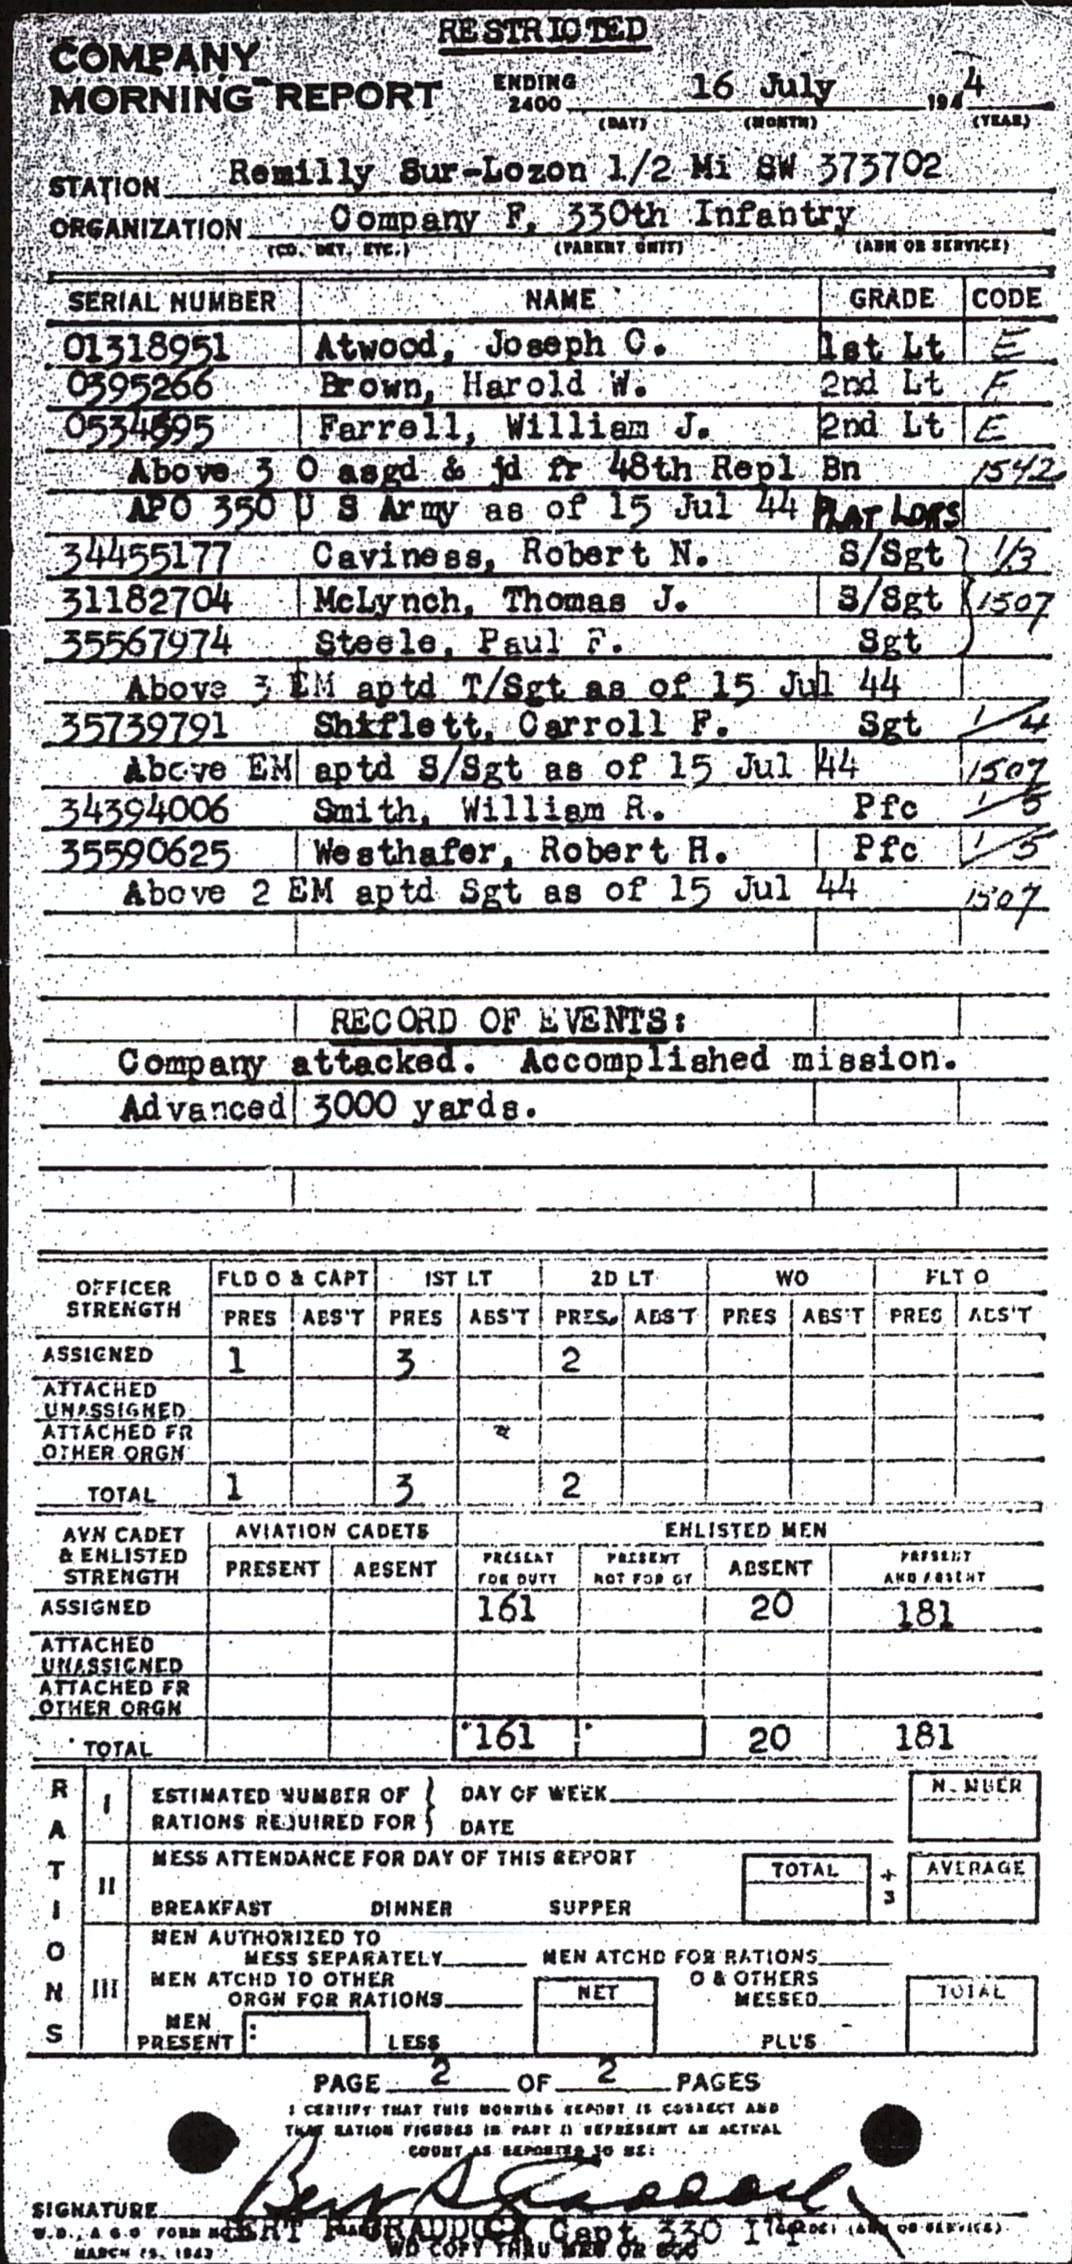 RESTRICTED
COMPANY
MORNING REPORT
ENDING
2400 16 July 1944
(DAY) (MONTH) (YEAR)
STATION Remilly Sur-Lozon 1/2 Mi SW 373702
ORGANIZATION Company F, 330th Infantry
(CO. DET. ETC.) (PARENT UNIT) (ARM OR SERVICE)
SERIAL NUMBER NAME GRADE CODE
01318951 Atwood, Joseph C. 1st Lt E
0395266 Brown, Harold W. 2nd Lt F
0534595 Farrell, William J. 2nd Lt E
Above 3 O asgd & jd fr 48th Repl Bn 1542
APO 350 U S Army as of 15 Jul 44 PLAT LDRS
34455177 Caviness, Robert N. S/Sgt 1/3
31182704 McLynch, Thomas J. S/Sgt 1507
35567974 Steele, Paul F. Sgt
Above 3 EM aptd T/Sgt as of 15 Jul 44
35739791 Shiflett, Carroll F. Sgt 1/4
Above EM aptd S/Sgt as of 15 Jul 44 1507
34394006 Smith, William R. Pfc 1/5
35590625 Westhafer, Robert H. Pfc 1/5
Above 2 EM aptd Sgt as of 15 Jul 44 1507
RECORD OF EVENTS:
Company attacked. Accomplished mission.
Advanced 3000 yards.
OFFICER
STRENGTH
FLD O & CAPT 1ST LT 2D LT WO FLT O
PRES ABS'T PRES ABS'T PRES. ABS'T PRES ABS'T PRES ABS'T
ASSIGNED 1 3 2
ATTACHED
UNASSIGNED
ATTACHED FR
OTHER ORGN
TOTAL 1 3 2
AVN CADET
& ENLISTED
STRENGTH
AVIATION CADETS ENLISTED MEN
PRESENT ABSENT PRESENT FOR DUTY PRESENT NOT FOR DY ABSENT PRESENT AND ABSENT
ASSIGNED 161 20 181
ATTACHED
UNASSIGNED
ATTACHED FR
OTHER ORGN
TOTAL 161 20 181
RATIONS
I
ESTIMATED NUMBER OF DAY OF WEEK NUMBER
RATIONS REQUIRED FOR DATE
II
MESS ATTENDANCE FOR DAY OF THIS REPORT TOTAL ÷ 3 AVERAGE
BREAKFAST DINNER SUPPER
III
MEN AUTHORIZED TO
MESS SEPARATELY MEN ATCHD FOR RATIONS
MEN ATCHD TO OTHER
ORGN FOR RATIONS NET O & OTHERS
MESSED TOTAL
MEN
PRESENT LESS PLUS
PAGE 2 OF 2 PAGES
I CERTIFY THAT THIS MORNING REPORT IS CORRECT AND
THAT RATION FIGURES IN PART II REPRESENT AN ACTUAL
COUNT AS REPORTED TO ME:
SIGNATURE
W.D., A G O FORM NO.
MARCH 15, 1943
CRADDOCK Capt 330 Inf
WD COPY THRU MRU OR